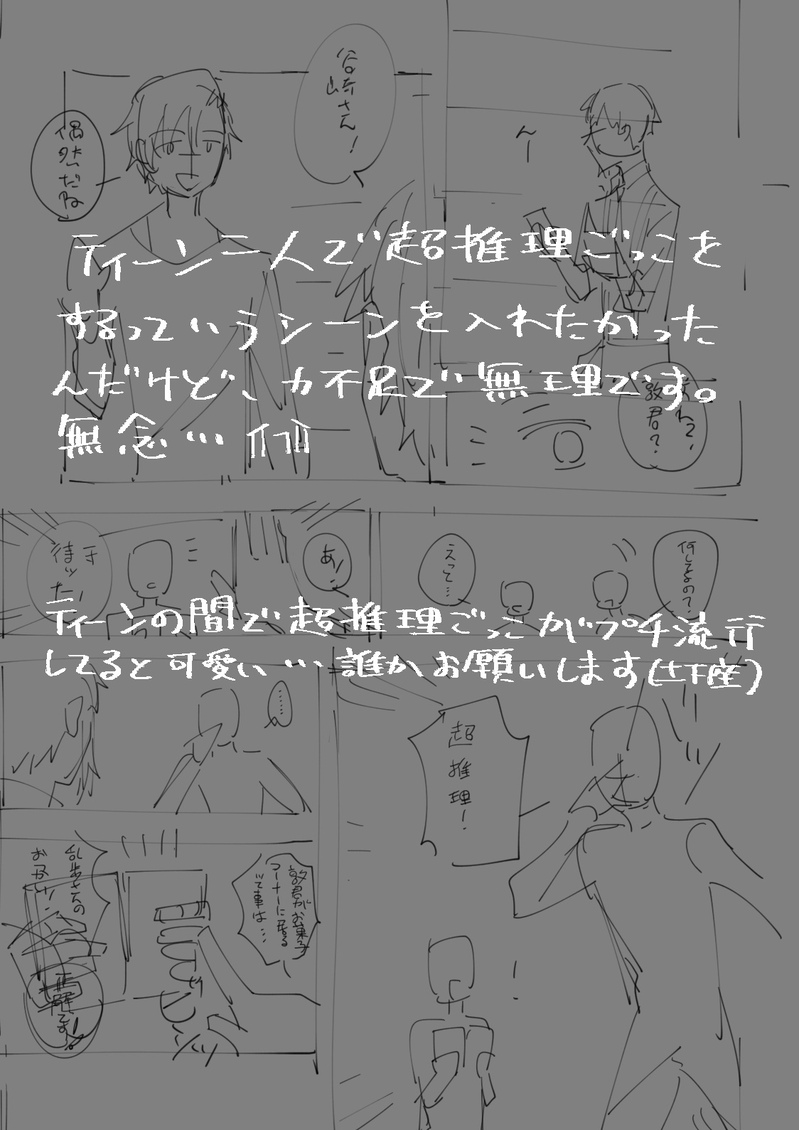 谷崎さん！
偶然だね
んー
ティーン二人で超推理ごっこを
するっていうシーンを入れたかった
んだけど、力不足で無理です。
無念…
敦君？
何してるの？
えって…
あっ！
待ッた！
ティーンの間で超推理ごっこがプチ流行
してると可愛い…誰かお願いします(土下座)
……
超
推
理！
敦君が
お菓子
コーナーに居る
って事は…
乱歩さんの
おつかい！
正解です！
！